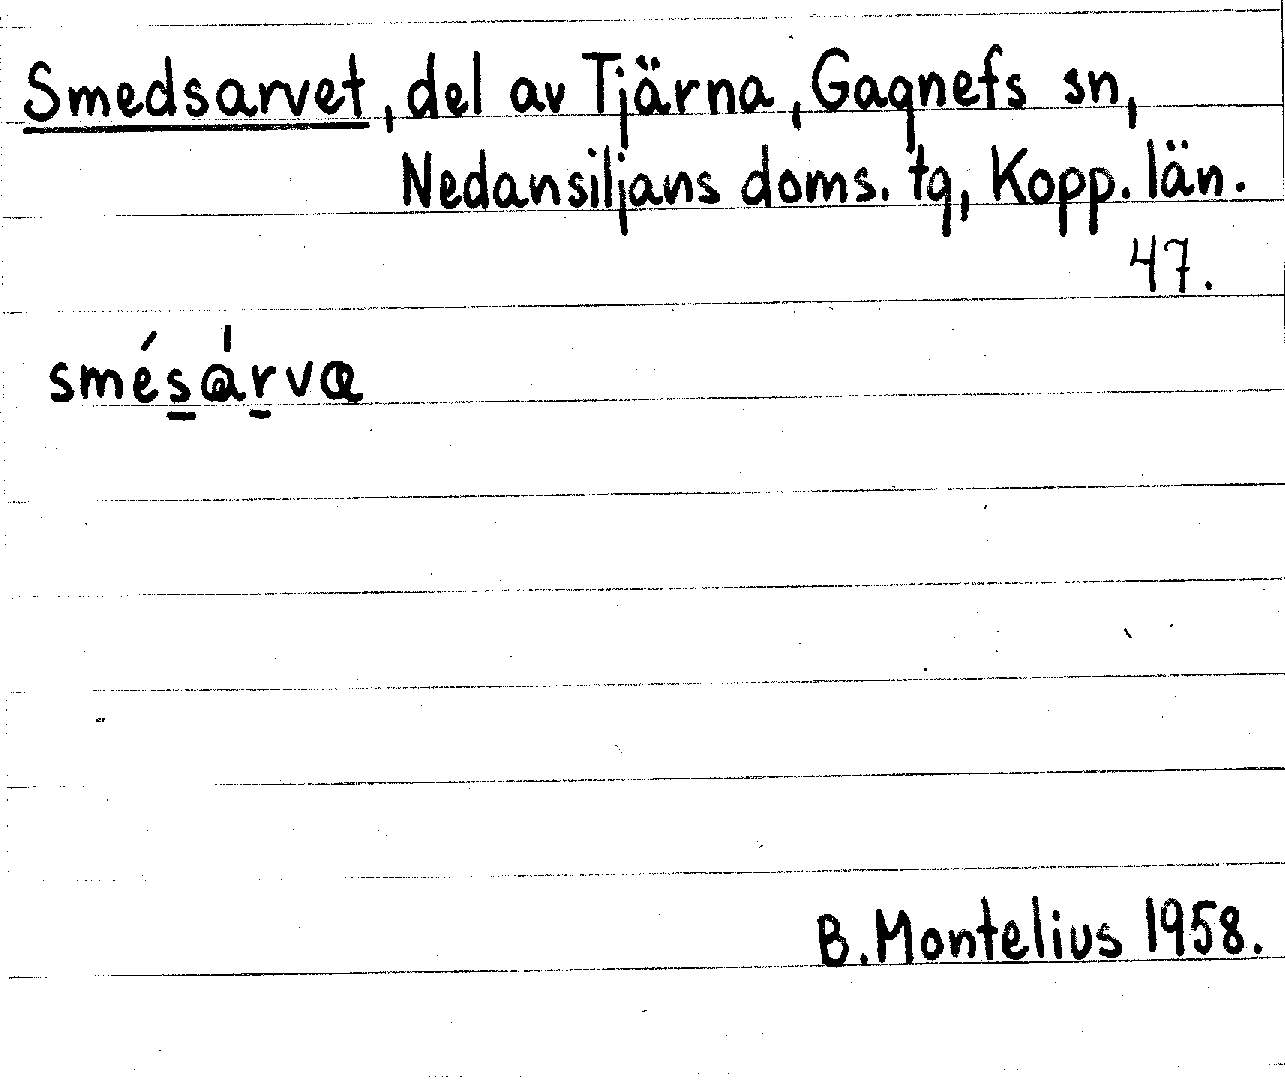 Smedsarvet, del av Tjärna, Gagnefs sn,
Nedansiljans doms. tg, Kopp. län.
47.
smésárva
B. Montelius 1958.